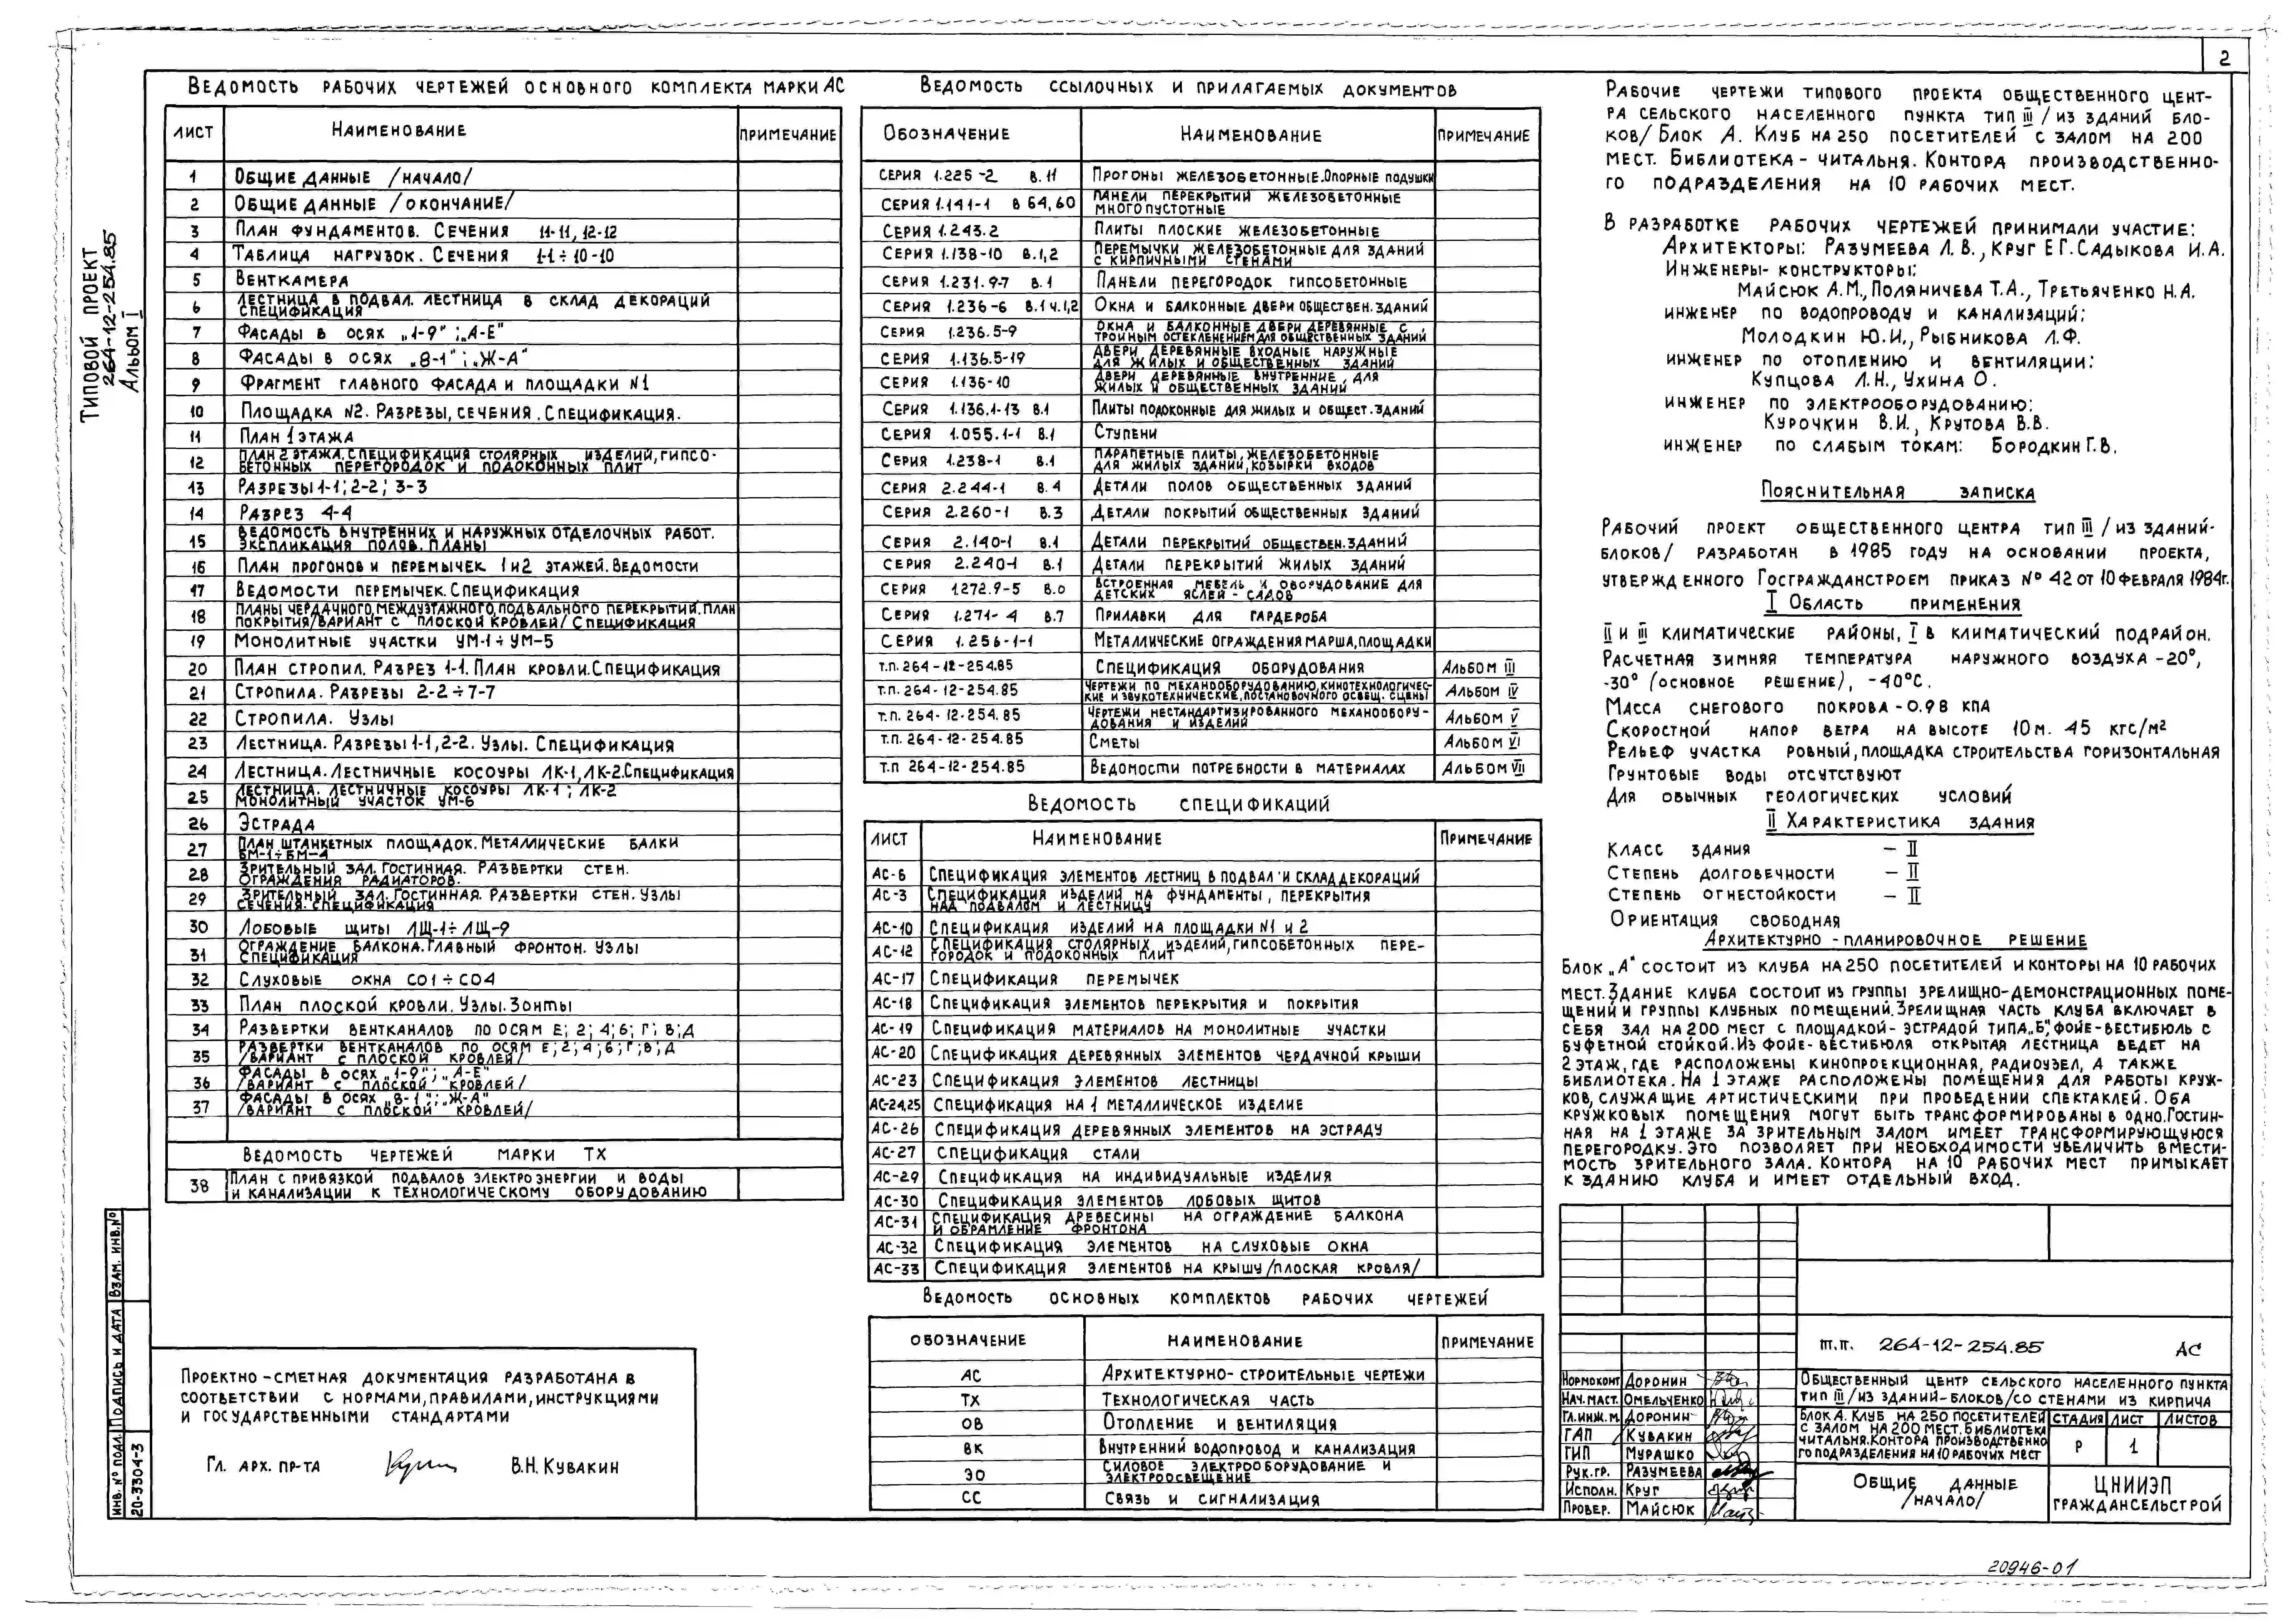 2
Типовой проект
264-12-254.85
Альбом I
Ведомость рабочих чертежей основного комплекта марки АС
лист Наименование примечание
1 Общие данные /начало/
2 Общие данные /окончание/
3 План фундаментов. Сечения 11-11, 12-12
4 Таблица нагрузок. Сечения 1-1÷10-10
5 Венткамера
6 Лестница в подвал. Лестница в склад декораций
Спецификация
7 Фасады в осях „1-9"; „А-Е"
8 Фасады в осях „8-1"; „Ж-А"
9 Фрагмент главного фасада и площадки №1
10 Площадка №2. Разрезы, сечения. Спецификация.
11 План 1 этажа
12 План 2 этажа. Спецификация столярных изделий, гипсо-
бетонных перегородок и подоконных плит
13 Разрезы 1-1; 2-2; 3-3
14 Разрез 4-4
15 Ведомость внутренних и наружных отделочных работ.
Экспликация полов. Планы
16 План прогонов и перемычек 1 и 2 этажей. Ведомости
17 Ведомости перемычек. Спецификация
18 Планы чердачного, междуэтажного, подвального перекрытий. План
покрытия/вариант с плоской кровлей/ Спецификация
19 Монолитные участки УМ-1÷УМ-5
20 План стропил. Разрез 1-1. План кровли. Спецификация
21 Стропила. Разрезы 2-2÷7-7
22 Стропила. Узлы
23 Лестница. Разрезы 1-1, 2-2. Узлы. Спецификация
24 Лестница. Лестничные косоуры ЛК-1, ЛК-2. Спецификация
25 Лестница. Лестничные косоуры ЛК-1; ЛК-2
Монолитный участок УМ-6
26 Эстрада
27 План штанкетных площадок. Металлические балки
БМ-1÷БМ-4
28 Зрительный зал. Гостинная. Развертки стен.
Ограждения радиаторов.
29 Зрительный зал. Гостинная. Развертки стен. Узлы
Сечения. Спецификация
30 Лобовые щиты ЛЩ-1÷ЛЩ-9
31 Ограждение балкона. Главный фронтон. Узлы
Спецификация
32 Слуховые окна СО1÷СО4
33 План плоской кровли. Узлы. Зонты
34 Развертки вентканалов по осям Е; 2; 4; 6; Г; В; Д
35 Развертки вентканалов по осям Е; 2; 4; 6; Г; В; Д
/вариант с плоской кровлей/
36 Фасады в осях „1-9"; „А-Е"
/вариант с плоской кровлей/
37 Фасады в осях „8-1"; „Ж-А"
/вариант с плоской кровлей/
Ведомость чертежей марки ТХ
38 План с привязкой подвалов электроэнергии и воды
и канализации к технологическому оборудованию
Проектно-сметная документация разработана в
соответствии с нормами, правилами, инструкциями
и государственными стандартами
Гл. арх. пр-та В.Н. Кувакин
Инв. № подл. Подпись и дата Взам. инв. №
20-3304-3
Ведомость ссылочных и прилагаемых документов
Обозначение Наименование примечание
Серия 1.225-2 в. 11 Прогоны железобетонные. Опорные подушки
Серия 1.141-1 в 64, 60 Панели перекрытий железобетонные
многопустотные
Серия 1.243.2 Плиты плоские железобетонные
Серия 1.138-10 в.1,2 Перемычки железобетонные для зданий
с кирпичными стенами
Серия 1.231.9-7 в. 1 Панели перегородок гипсобетонные
Серия 1.236-6 в.1 ч.1,2 Окна и балконные двери обществен. зданий
Серия 1.236.5-9 Окна и балконные двери деревянные с
тройным остекленением для общественных зданий
Серия 1.136.5-19 Двери деревянные входные наружные
для жилых и общественных зданий
Серия 1.136-10 Двери деревянные внутренние для
жилых и общественных зданий
Серия 1.136.1-13 в.1 Плиты подоконные для жилых и общест. зданий
Серия 1.055.1-1 в.1 Ступени
Серия 1.238-1 в.1 Парапетные плиты, железобетонные
для жилых зданий, козырки входов
Серия 2.244-1 в. 4 Детали полов общественных зданий
Серия 2.260-1 в.3 Детали покрытий общественных зданий
Серия 2.140-1 в.1 Детали перекрытий обществен. зданий
Серия 2.240-1 в.1 Детали перекрытий жилых зданий
Серия 1.272.9-5 в.0 Встроенная мебель и оборудование для
детских яслей-садов
Серия 1.271-4 в.7 Прилавки для гардероба
Серия 1.256-1-1 Металлические ограждения марша, площадки
т.п. 264-12-254.85 Спецификация оборудования Альбом III
т.п. 264-12-254.85 Чертежи по механооборудованию, кинотехнологичес-
кие и звукотехнические, постановочного освещ. сцены Альбом IV
т.п. 264-12-254.85 Чертежи нестандартизированного механообору-
дования и изделий Альбом V
т.п. 264-12-254.85 Сметы Альбом VI
т.п 264-12-254.85 Ведомости потребности в материалах Альбом VII
Ведомость спецификаций
лист Наименование Примечание
АС-6 Спецификация элементов лестниц в подвал и склад декораций
АС-3 Спецификация изделий на фундаменты, перекрытия
над подвалом и лестницу
АС-10 Спецификация изделий на площадки №1 и 2
АС-12 Спецификация столярных изделий, гипсобетонных пере-
городок и подоконных плит
АС-17 Спецификация перемычек
АС-18 Спецификация элементов перекрытия и покрытия
АС-19 Спецификация материалов на монолитные участки
АС-20 Спецификация деревянных элементов чердачной крыши
АС-23 Спецификация элементов лестницы
АС-24,25 Спецификация на 1 металлическое изделие
АС-26 Спецификация деревянных элементов на эстраду
АС-27 Спецификация стали
АС-29 Спецификация на индивидуальные изделия
АС-30 Спецификация элементов лобовых щитов
АС-31 Спецификация древесины на ограждение балкона
и обрамление фронтона
АС-32 Спецификация элементов на слуховые окна
АС-33 Спецификация элементов на крышу /плоская кровля/
Ведомость основных комплектов рабочих чертежей
обозначение наименование примечание
АС Архитектурно-строительные чертежи
ТХ Технологическая часть
ОВ Отопление и вентиляция
ВК Внутренний водопровод и канализация
ЭО Силовое электрооборудование и
электроосвещение
СС Связь и сигнализация
Рабочие чертежи типового проекта общественного цент-
ра сельского населенного пункта тип III /из зданий бло-
ков/ Блок А. Клуб на 250 посетителей с залом на 200
мест. Библиотека-читальня. Контора производственно-
го подразделения на 10 рабочих мест.
В разработке рабочих чертежей принимали участие:
Архитекторы: Разумеева Л.В., Круг Е.Г. Садыкова И.А.
Инженеры-конструкторы:
Майсюк А.М., Поляничева Т.А., Третьяченко Н.А.
инженер по водопроводу и канализаций:
Молодкин Ю.И., Рыбникова Л.Ф.
инженер по отоплению и вентиляции:
Купцова Л.Н., Ухина О.
инженер по электрооборудованию:
Курочкин В.И., Крутова В.В.
инженер по слабым токам: Бородкин Г.В.
Пояснительная записка
Рабочий проект общественного центра тип III /из зданий-
блоков/ разработан в 1985 году на основании проекта,
утвержденного Госгражданстроем приказ №42 от 10 февраля 1984г.
I Область применения
II и III климатические районы, I в климатический подрайон.
Расчетная зимняя температура наружного воздуха -20°,
-30° (основное решение), -40°С.
Масса снегового покрова-0.98 кПа
Скоростной напор ветра на высоте 10м. 45 кгс/м²
Рельеф участка ровный, площадка строительства горизонтальная
Грунтовые воды отсутствуют
Для обычных геологических условий
II Характеристика здания
Класс здания – II
Степень долговечности – II
Степень огнестойкости – II
Ориентация свободная
Архитектурно-планировочное решение
Блок „А" состоит из клуба на 250 посетителей и конторы на 10 рабочих
мест. Здание клуба состоит из группы зрелищно-демонстрационных поме-
щений и группы клубных помещений. Зрелищная часть клуба включает в
себя зал на 200 мест с площадкой-эстрадой типа „Б", фойе-вестибюль с
буфетной стойкой. Из фойе-вестибюля открытая лестница ведет на
2 этаж, где расположены кинопроекционная, радиоузел, а также
библиотека. На 1 этаже расположены помещения для работы круж-
ков, служащие артистическими при проведении спектаклей. Оба
кружковых помещения могут быть трансформированы в одно. Гостин-
ная на 1 этаже за зрительным залом имеет трансформирующуюся
перегородку. Это позволяет при необходимости увеличить вмести-
мость зрительного зала. Контора на 10 рабочих мест примыкает
к зданию клуба и имеет отдельный вход.
т.п. 264-12-254.85 АС
Нормоконт Доронин
Нач. маст. Омельченко
Гл. инж. м. Доронин
ГАП Кувакин
ГИП Мурашко
Рук. гр. Разумеева
Исполн. Круг
Провер. Майсюк
Общественный центр сельского населенного пункта
тип III /из зданий-блоков/ со стенами из кирпича
Блок А. Клуб на 250 посетителей
с залом на 200 мест. Библиотека
читальня. Контора производственно
го подразделения на 10 рабочих мест
стадия лист листов
Р 1
Общие данные
/начало/
ЦНИИЭП
граждансельстрой
20946-01